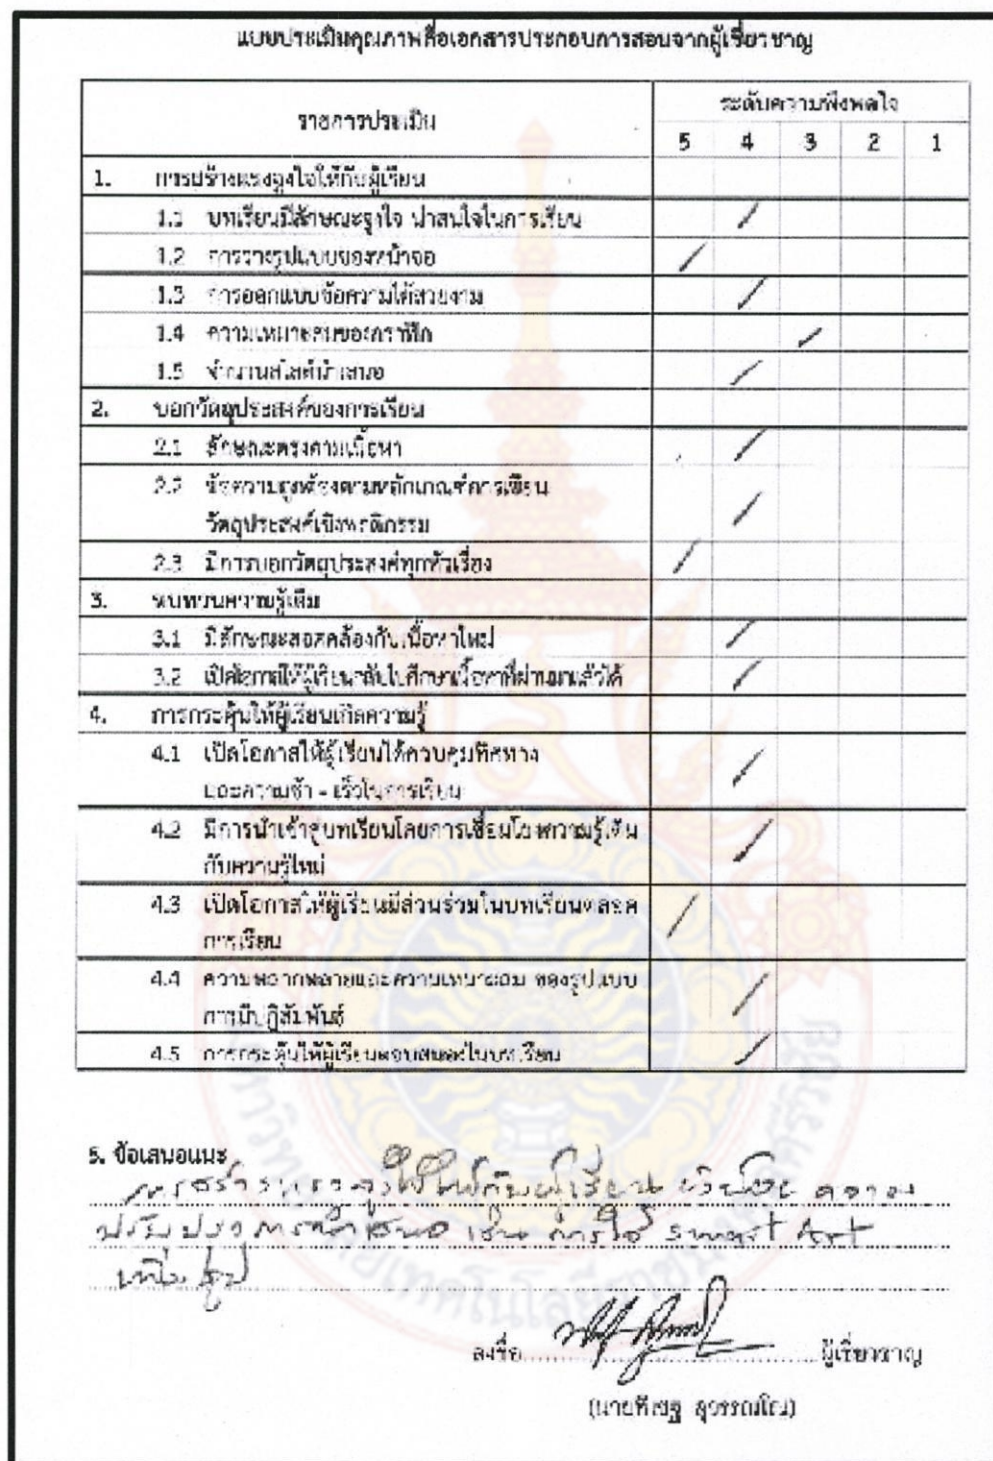 แบบประเมินคุณภาพสื่อเอกสารประกอบการสอนจากผู้เชี่ยวชาญ
รายการประเมิน
ระดับความพึงพอใจ
5 4 3 2 1
1. การสร้างแรงจูงใจให้กับผู้เรียน
1.1 บทเรียนมีลักษณะจูงใจ น่าสนใจในการเรียน
1.2 การวางรูปแบบของหน้าจอ
1.3 การออกแบบข้อความได้สวยงาม
1.4 ความเหมาะสมของกราฟิก
1.5 จำนวนสไลด์นำเสนอ
2. บอกวัตถุประสงค์ของการเรียน
2.1 ลักษณะตรงตามเนื้อหา
2.2 ข้อความถูกต้องตามหลักเกณฑ์การเขียน
วัตถุประสงค์เชิงพฤติกรรม
2.3 มีการบอกวัตถุประสงค์ทุกหัวเรื่อง
3. ทบทวนความรู้เดิม
3.1 มีลักษณะสอดคล้องกับเนื้อหาใหม่
3.2 เปิดโอกาสให้ผู้เรียนกลับไปศึกษาเนื้อหาที่ผ่านมาแล้วได้
4. การกระตุ้นให้ผู้เรียนเกิดความรู้
4.1 เปิดโอกาสให้ผู้เรียนได้ควบคุมทิศทาง
และความช้า - เร็วในการเรียน
4.2 มีการนำเข้าสู่บทเรียนโดยการเชื่อมโยงความรู้เดิม
กับความรู้ใหม่
4.3 เปิดโอกาสให้ผู้เรียนมีส่วนร่วมในบทเรียนตลอด
การเรียน
4.4 ความหลากหลายและความเหมาะสม ของรูปแบบ
การมีปฏิสัมพันธ์
4.5 การกระตุ้นให้ผู้เรียนตอบสนองในบทเรียน
5. ข้อเสนอแนะ
การสร้างแรงจูงใจให้กับผู้เรียน ควร
ปรับปรุงการนำเสนอ เช่น การใช้ Smart Art
รูป
ลงชื่อ ผู้เชี่ยวชาญ
สุวรรณโณ)